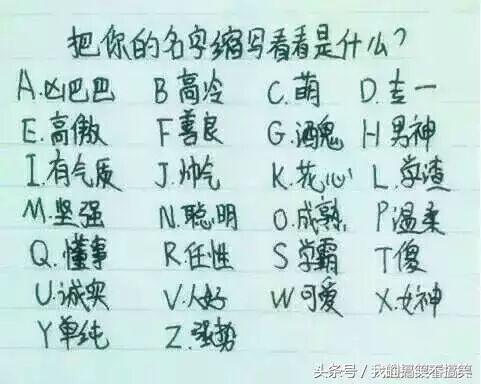 把你的名字缩写看看是什么?
A.凶巴巴 B高冷 C.萌 D.专一
E.高傲 F善良 G.酒鬼 H男神
I.有气质 J.帅气 K.花心 L.学渣
M.坚强 N.聪明 O.成熟 P温柔
Q.懂事 R.任性 S学霸 T傻
U.诚实 V.人好 W可爱 X.女神
Y单纯 Z.强势
头条号/我的搞笑不搞笑